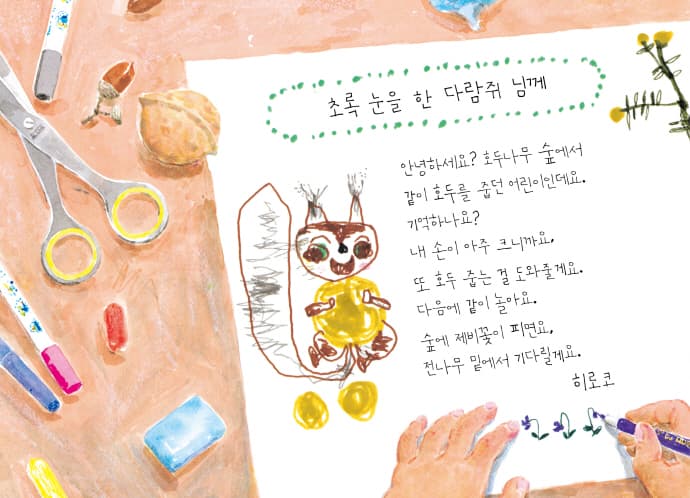 초록 눈을 한 다람쥐 님께
안녕하세요? 호두나무 숲에서
같이 호두를 줍던 어린이인데요.
기억하나요?
내 손이 아주 크니까요,
또 호두 줍는 걸 도와줄게요.
다음에 같이 놀아요.
숲에 제비꽃이 피면요,
전나무 밑에서 기다릴게요.
히로코